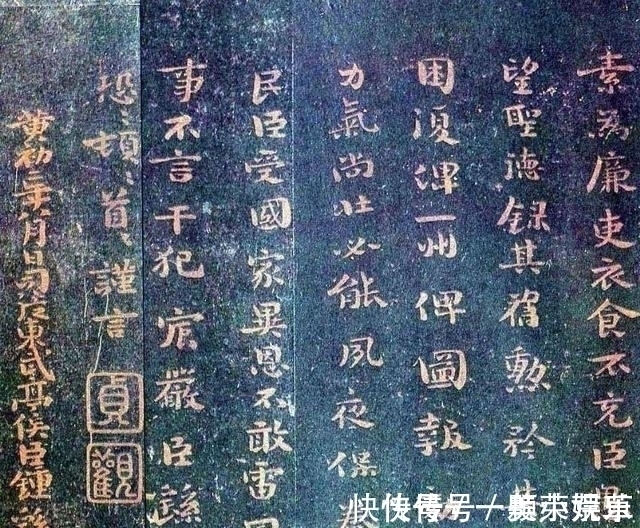 素為廉吏衣食不充臣
望聖德錄其舊勳矜
困復俾一州俾圖報
力氣尚壯必能夙夜保
民臣受國家異恩不敢雷同
事不言干犯宸嚴臣繇
恐〻頓〻首〻謹言
貞觀
黃初二年八月日司徒東武亭侯臣鍾繇